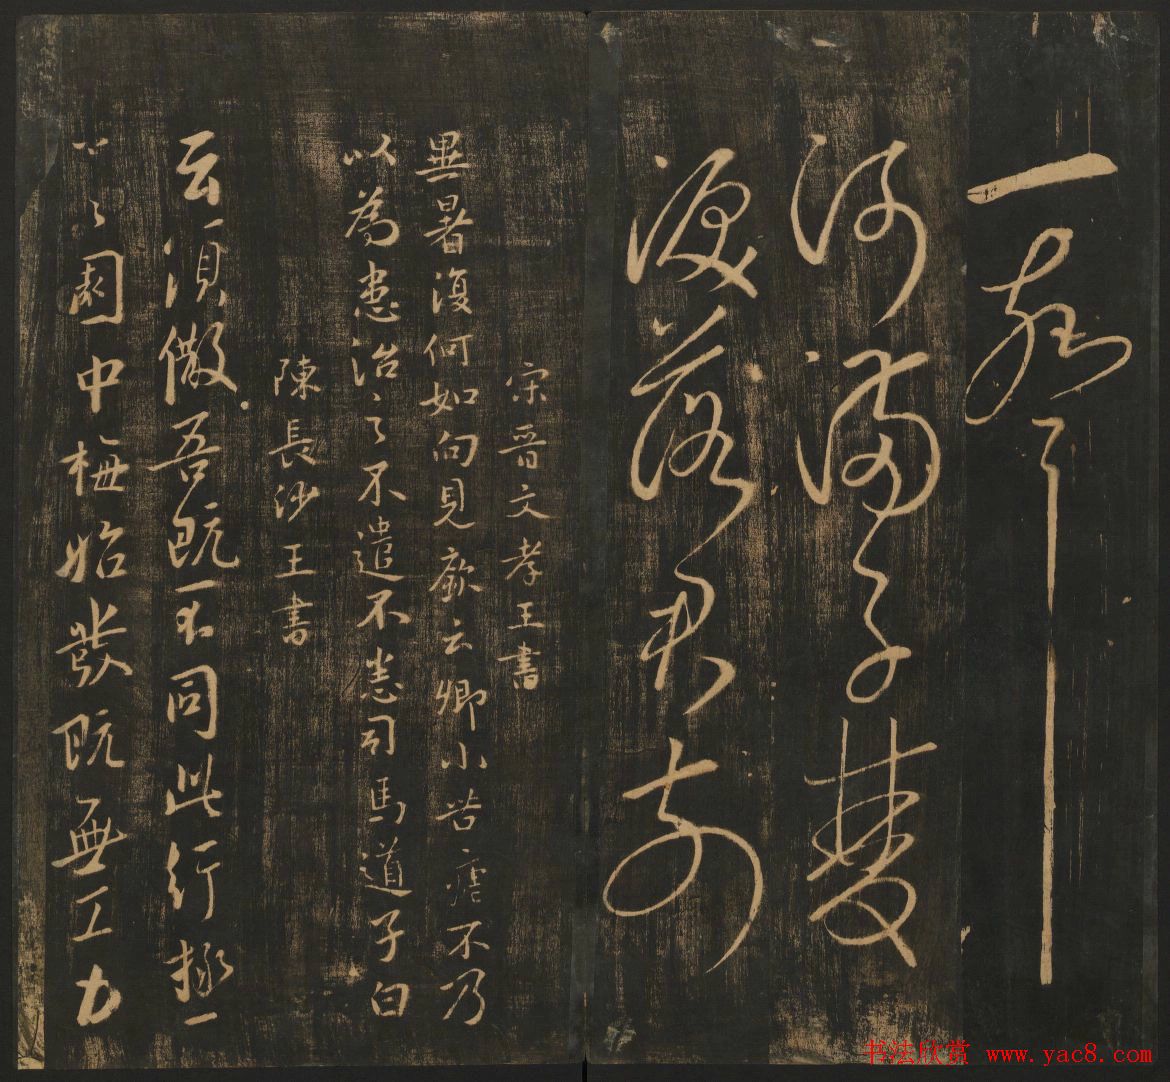 一聲
何滿子雙
淚落君前
宋晉文孝王書
異暑復何如向見厥云卿小苦瘧不乃
以為患治之不遣不恙司馬道子白
陳長沙王書
云須儆吾既不同此行極一
園中梅始發既無工力
书法欣赏 www.yac8.com